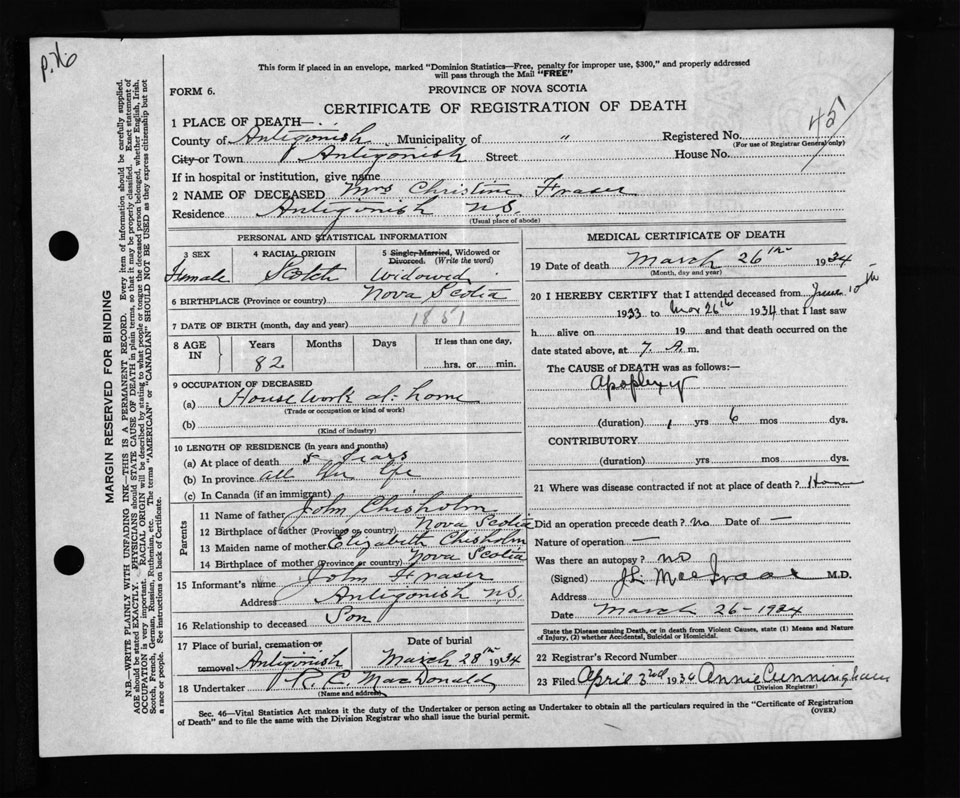 P.76
This form if placed in an envelope, marked "Dominion Statistics—Free, penalty for improper use, $300," and properly addressed
will pass through the Mail "FREE"
FORM 6.
PROVINCE OF NOVA SCOTIA
CERTIFICATE OF REGISTRATION OF DEATH
45
1 PLACE OF DEATH—
County of Antigonish Municipality of " Registered No.
(For use of Registrar General only)
City or Town Antigonish Street House No.
If in hospital or institution, give name
2 NAME OF DECEASED Mrs Christine Fraser
Residence Antigonish N.S.
(Usual place of abode)
PERSONAL AND STATISTICAL INFORMATION
3 SEX 4 RACIAL ORIGIN 5 Single, Married, Widowed or
Divorced. (Write the word)
Female Scotch Widowed
6 BIRTHPLACE (Province or country) Nova Scotia
7 DATE OF BIRTH (month, day and year) 1851
8 AGE IN Years Months Days If less than one day,
82 hrs. or min.
9 OCCUPATION OF DECEASED
(a) House work at home
(Trade or occupation or kind of work)
(b)
(Kind of industry)
10 LENGTH OF RESIDENCE (in years and months)
(a) At place of death 5 years
(b) In province all her life
(c) In Canada (if an immigrant)
Parents
11 Name of father John Chisholm
12 Birthplace of father (Province or country) Nova Scotia
13 Maiden name of mother Elizabeth Chisholm
14 Birthplace of mother (Province or country) Nova Scotia
15 Informant's name John Fraser
Address Antigonish N.S.
16 Relationship to deceased Son
17 Place of burial, cremation or Date of burial
removal Antigonish March 28th 1934
18 Undertaker R.C. MacDonald
(Name and address)
MEDICAL CERTIFICATE OF DEATH
19 Date of death March 26th 1934
(Month, day and year)
20 I HEREBY CERTIFY that I attended deceased from June 10th
1933 to Mar 26th 1934 that I last saw
h alive on 19 and that death occurred on the
date stated above, at 7. A. m.
The CAUSE of DEATH was as follows:—
Apoplexy
(duration) 1 yrs 6 mos dys.
CONTRIBUTORY
(duration) yrs mos dys.
21 Where was disease contracted if not at place of death? Home
Did an operation precede death? no Date of —
Nature of operation —
Was there an autopsy? no
(Signed) M.D.
Address
Date March 26-1934
State the Disease causing Death, or in death from Violent Causes, state (1) Means and Nature
of Injury, (2) whether Accidental, Suicidal or Homicidal.
22 Registrar's Record Number
23 Filed April 3rd 1934 Annie Cunningham
(Division Registrar)
Sec. 46—Vital Statistics Act makes it the duty of the Undertaker or person acting as Undertaker to obtain all the particulars required in the "Certificate of Registration
of Death" and to file the same with the Division Registrar who shall issue the burial permit. (OVER)
MARGIN RESERVED FOR BINDING
N.B.—WRITE PLAINLY WITH UNFADING INK—THIS IS A PERMANENT RECORD. Every item of information should be carefully supplied.
AGE should be stated EXACTLY. PHYSICIANS should STATE CAUSE OF DEATH in plain terms, so that it may be properly classified. Exact statement of
OCCUPATION is very important. RACIAL ORIGIN will be described by stating to what people or tongue the deceased person belonged, whether English, Irish,
Scotch, French, German, Russian, Ruthenian, etc. The terms "AMERICAN" or "CANADIAN" SHOULD NOT BE USED as they express citizenship but not
a race or people. See instructions on back of Certificate.